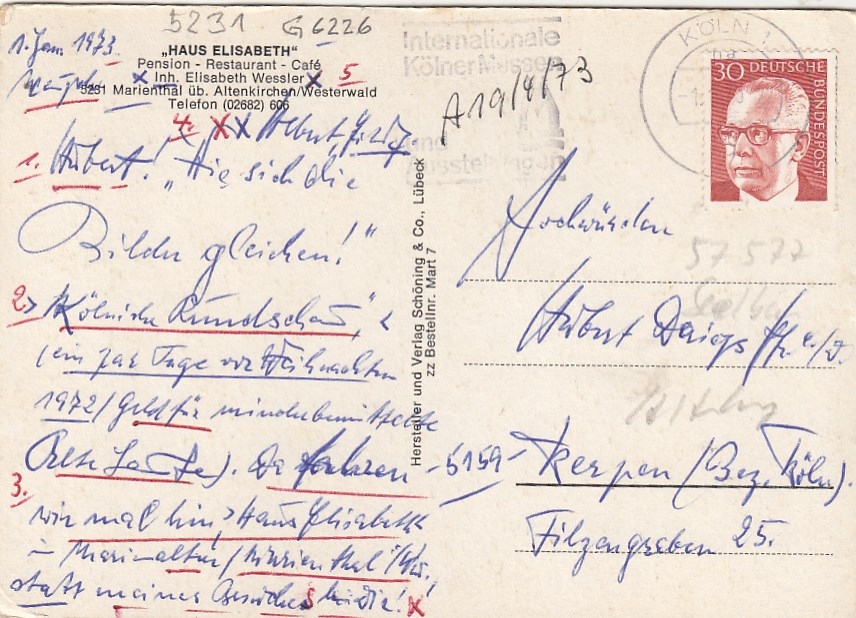 5231 G 6226
1. Jan. 1973.
„HAUS ELISABETH"
Pension - Restaurant - Café
x Inh. Elisabeth Wessler x 5
5231 Marienthal üb. Altenkirchen/Westerwald
Telefon (02682) 606
A 19/4/73
Internationale
Kölner Messen
und
Ausstellungen
KÖLN 1
30 DEUTSCHE BUNDESPOST
4. x x
1. Hubert! „Wie sich die
Bilder gleichen!"
2> „Kölnische Rundschau",
(ein paar Tage vor Weihnachten
1972/Geld für minderbemittelte
Alte Leute). Da fahren
3. wir mal hin, > Haus Elisabeth
in Marienthal
statt meines Besuches bei Dir! x
Hersteller und Verlag Schöning & Co., Lübeck
zz Bestellnr. Mart 7
Hochwürden
Hubert
57 577
-5159- Kerpen (Bez. Köln).
Filzengraben 25.